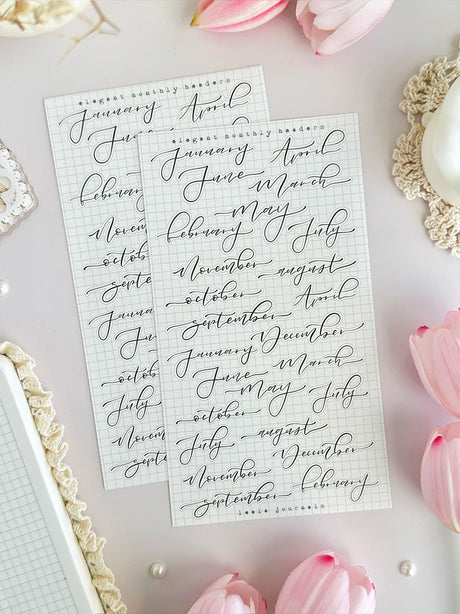 elegant monthly headers
January April
June
february
November
october
september
January
June
october
July
November
september
elegant monthly headers
January April
June March
May
february July
November august
october April
september
January December
June March
May July
october
July august
November December
september february
leele journals